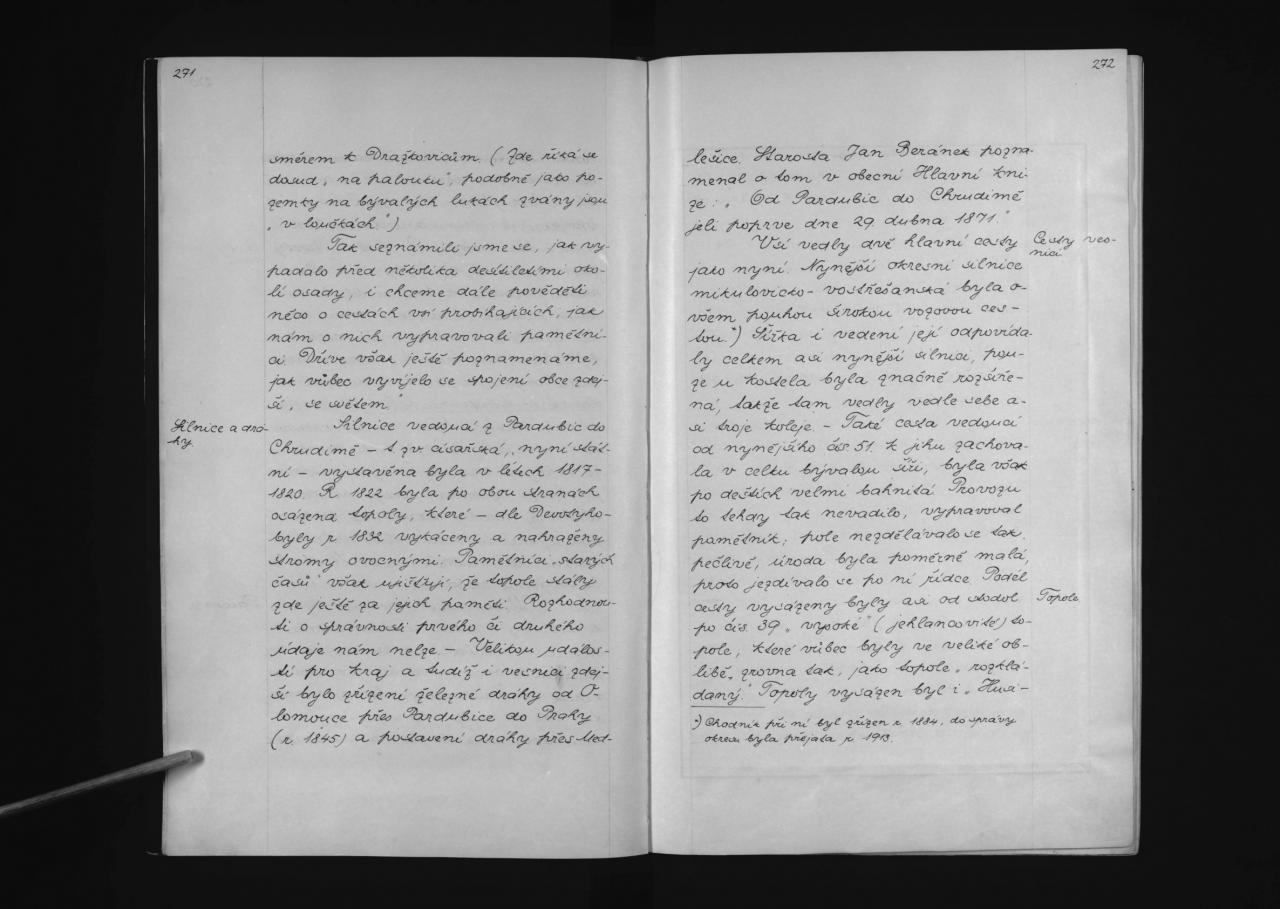 271
směrem k Dražkovicům. (Zde říká se
dosud „na palouku", podobně jako po-
zemky na bývalých lukách zvány jsou
„v loučkách.")
Tak seznámili jsme se, jak vy-
padalo před několika desítiletími oko-
lí osady, i chceme dále pověděti
něco o cestách vsí probíhajících, jak
nám o nich vypravovali pamětní-
ci. Dříve však ještě poznamenáme,
jak vůbec vyvíjelo se spojení obce zdej-
ší „se světem."
Silnice a drá-
hy.
Silnice vedoucí z Pardubic do
Chrudimě – t. zv. císařská, nyní stát-
ní – vystavěna byla v letech 1817-
1820. R. 1822 byla po obou stranách
osázena topoly, které – dle Devotyho-
byly r. 1832 vykáceny a nahraženy
stromy ovocnými. Pamětníci „starých
časů" však ujišťují, že topole stály
zde ještě za jejich paměti. Rozhodnou-
ti o správnosti prvého či druhého
údaje nám nelze. – Velikou událos-
tí pro kraj a tudíž i vesnici zdej-
ší bylo zřízení železné dráhy od O-
lomouce přes Pardubice do Prahy
(r. 1845) a postavení dráhy přes Med-
272
lešice. Starosta Jan Beránek pozna-
menal o tom v obecní Hlavní kni-
ze: „Od Pardubic do Chrudimě
jeli poprve dne 29. dubna 1871."
Vsí vedly dvě hlavní cesty
Cesty ves-
nicí
jako nyní. Nynější okresní silnice
mikulovicko-vostřešanská byla o-
všem pouhou širokou vozovou ces-
tou.*) Šířka i vedení její odpovída-
ly celkem asi nynější silnici, pou-
ze u kostela byla značně rozšíře-
ná, takže tam vedly vedle sebe a-
si troje koleje. – Také cesta vedoucí
od nynějšího čís. 51. k jihu zachova-
la v celku bývalou šíři, byla však
po deštích velmi bahnitá. Provozu
to tehdy tak nevadilo, vypravoval
pamětník; pole nezdělávalo se tak
pečlivě, úroda byla poměrně malá,
proto jezdívalo se po ní řídce. Podél
cesty vysázeny byly asi od stodol
Topole
po čís. 39 „vysoké" (jehlancovité) to-
pole, které vůbec byly ve veliké ob-
libě, zrovna tak, jako topole „rozklá-
daný." Topoly vysázen byl i „Husí-
*) Chodník při ní byl zřízen r. 1884, do správy
okresu byla přejata r. 1913.